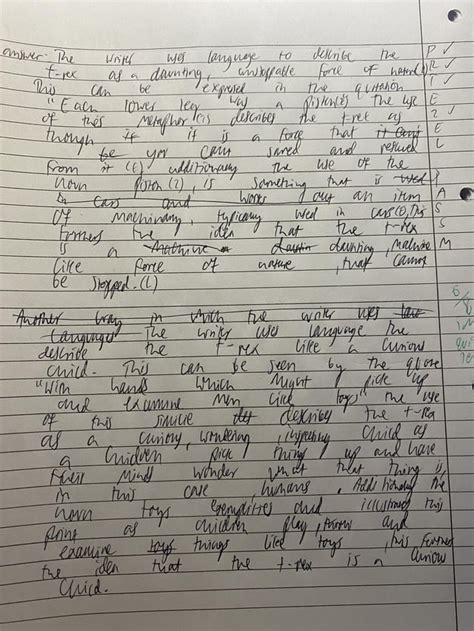 answer- The writer uses language to describe the P ✓
t-rex as a daunting, unstoppable force of nature(P) R ✓
This can be expressed in the quotation I ✓
"Each lower leg was a piston(E) The use E
of this metaphor(I) describes the t-rex as 2 ✓
though if it is a force that it can't E
be you can't saved and rescued L
from it (E) additionally the use of the
noun piston (2), is something that is used P
in cars and works out an item A
of machinary, typically used in cars(I), This S
furthers the idea that the t-rex S
is a machine a daunting, machine M
like force of nature, that cannot
be stopped. (L)
Another way in which the writer uses
language The writer uses language the
describe the t-rex like a curious
child. This can be seen by the quote
"With hands which might pick up
and examine men like toys" the use
of this simile describes the t-rex
as a curious, wondering, inspecting child as
a children pick things up and have
their minds wonder what that thing is,
in this case, humans. Additionally the
noun toys exemplifies and illustrates this
as children play, throw and
examine toys things like toys, this furthers
the idea that the t-rex is a curious
child.